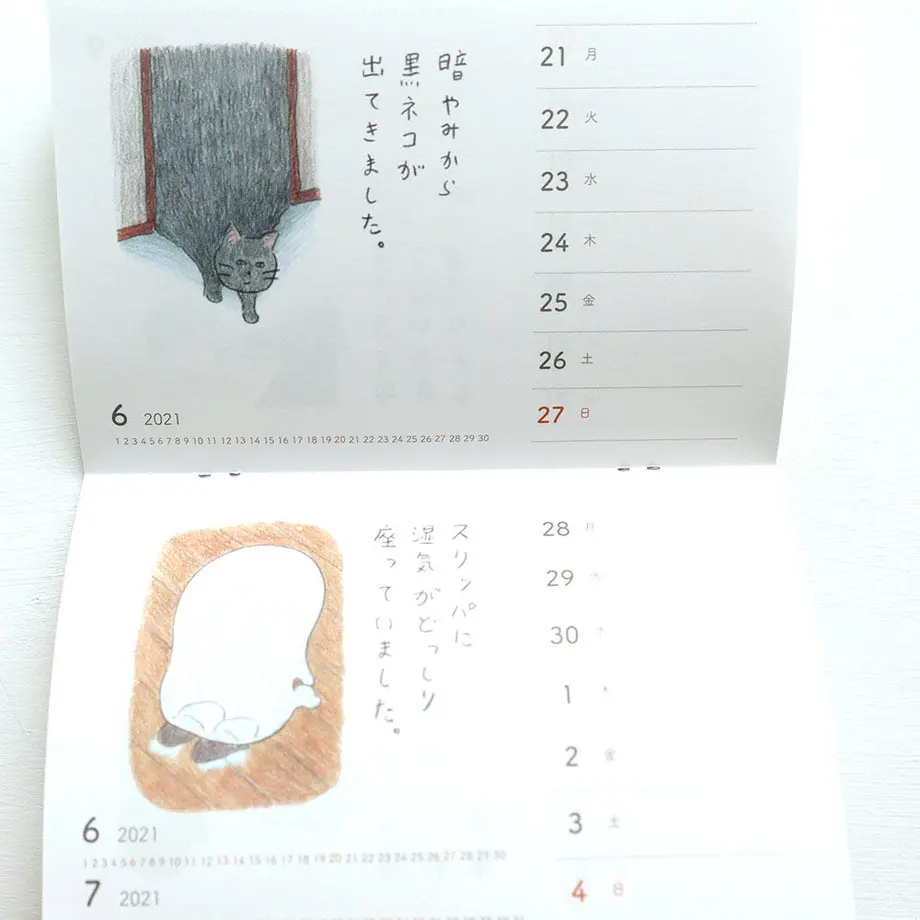 暗やみから
黒ネコが
出てきました。
21 月
22 火
23 水
24 木
25 金
26 土
27 日
6 2021
1 2 3 4 5 6 7 8 9 10 11 12 13 14 15 16 17 18 19 20 21 22 23 24 25 26 27 28 29 30
スリッパに
湿気がどっしり
座っていました。
28 月
29 火
30 水
1 木
2 金
3 土
4 日
6 2021
1 2 3 4 5 6 7 8 9 10 11 12 13 14 15 16 17 18 19 20 21 22 23 24 25 26 27 28 29 30
7 2021